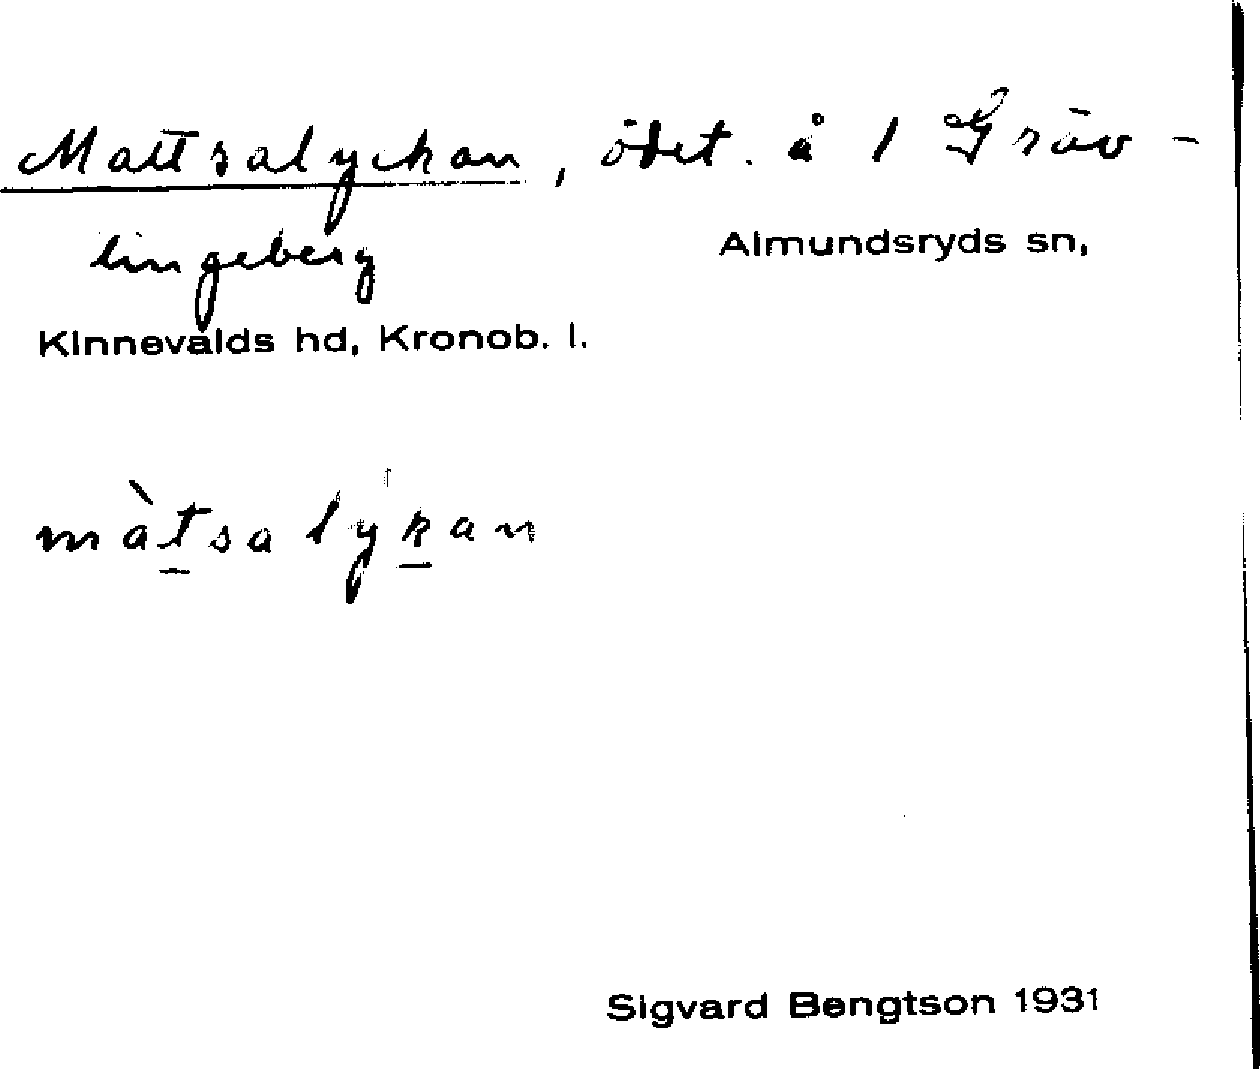 Mattsalyckan, ödet. å 1 Gräv-
lingeberg Almundsryds sn,
Kinnevalds hd, Kronob. l.
màt̲saly̍k̲an
Sigvard Bengtson 1931